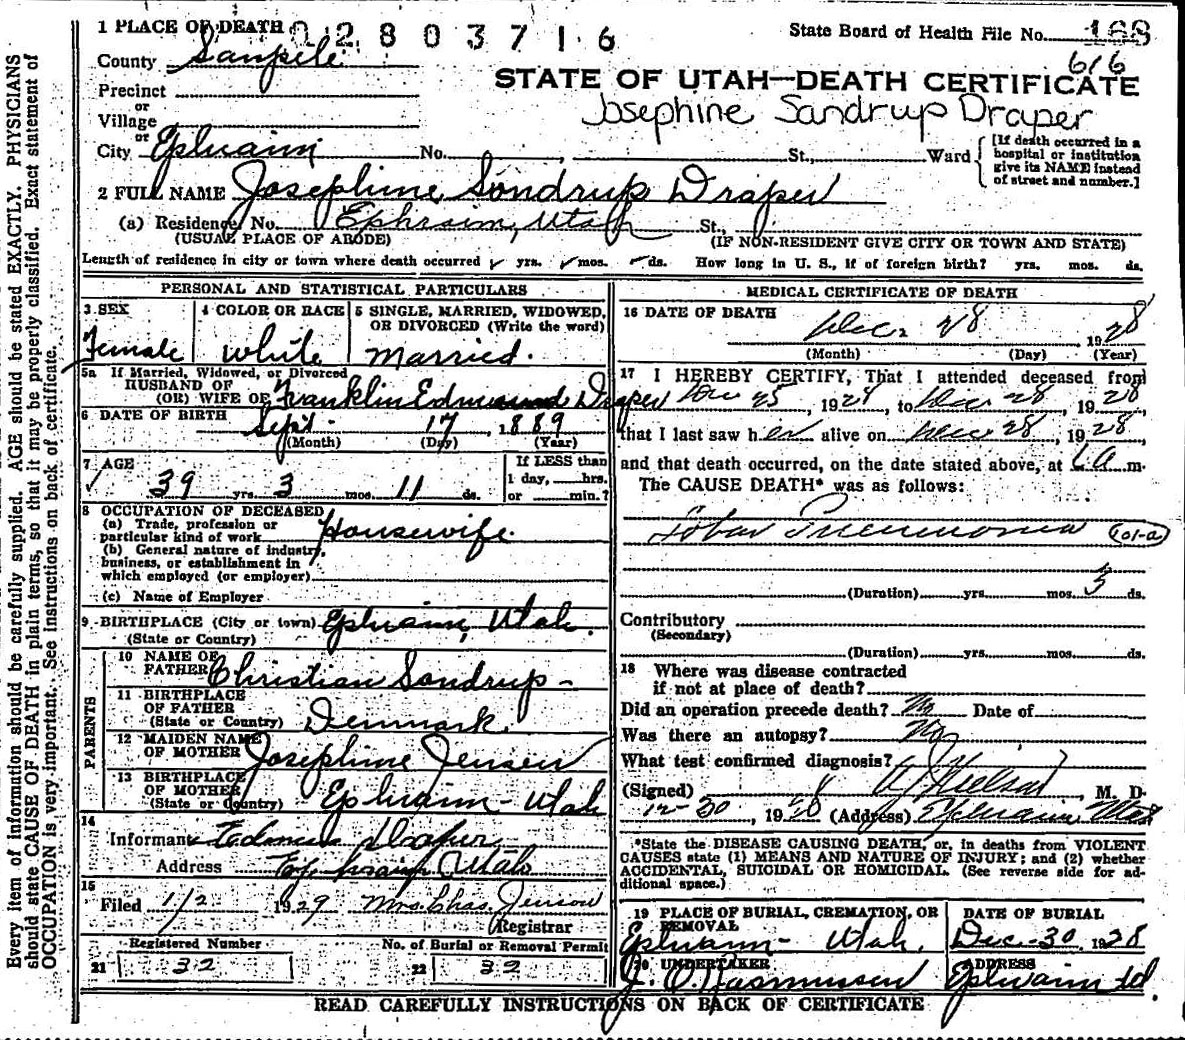 1 PLACE OF DEATH 0 2 8 0 3 7 1 6
State Board of Health File No. 168
616
County Sanpete
STATE OF UTAH—DEATH CERTIFICATE
Precinct
or
Village
or
Josephine Sandrup Draper
City Ephraim No. , St., Ward
[If death occurred in a hospital or institution give its NAME instead of street and number.]
2 FULL NAME Josephine Sondrup Draper
(a) Residence, No. Ephraim, Utah St.,
(USUAL PLACE OF ABODE) (IF NON-RESIDENT GIVE CITY OR TOWN AND STATE)
Length of residence in city or town where death occurred yrs. mos. ds. How long in U. S., if of foreign birth? yrs. mos. ds.
PERSONAL AND STATISTICAL PARTICULARS
3 SEX
Female
4 COLOR OR RACE
White
5 SINGLE, MARRIED, WIDOWED, OR DIVORCED (Write the word)
Married.
5a If Married, Widowed, or Divorced
HUSBAND OF
(OR) WIFE OF Franklin Edmund Draper
6 DATE OF BIRTH
Sept. 17, 1889
(Month) (Day) (Year)
7 AGE
39 yrs. 3 mos. 11 ds.
If LESS than
1 day, hrs.
or min.?
8 OCCUPATION OF DECEASED
(a) Trade, profession or
particular kind of work Housewife.
(b) General nature of industry,
business, or establishment in
which employed (or employer)
(c) Name of Employer
9 BIRTHPLACE (City or town) Ephraim, Utah.
(State or Country)
PARENTS
10 NAME OF
FATHER Christian Sondrup -
11 BIRTHPLACE
OF FATHER
(State or Country) Denmark.
12 MAIDEN NAME
OF MOTHER Josephine Jensen
13 BIRTHPLACE
OF MOTHER
(State or Country) Ephraim - Utah
14
Informant Edmund Draper
Address Ephraim Utah
15
Filed 1/2 1929 Mrs. Chas. Jenson
Registrar
Registered Number
21 32
No. of Burial or Removal Permit
22 32
MEDICAL CERTIFICATE OF DEATH
16 DATE OF DEATH
Dec. 28 1928
(Month) (Day) (Year)
17 I HEREBY CERTIFY, That I attended deceased from
Dec 25, 1928, to Dec 28, 1928
that I last saw her alive on Dec 28, 1928,
and that death occurred, on the date stated above, at m.
The CAUSE DEATH* was as follows:
Lobar Pneumonia 101-a
(Duration) yrs. mos. 3 ds.
Contributory
(Secondary)
(Duration) yrs. mos. ds.
18 Where was disease contracted
if not at place of death?
Did an operation precede death? No Date of
Was there an autopsy? No
What test confirmed diagnosis?
(Signed) , M. D.
12-30, 1928 (Address) Ephraim Utah
*State the DISEASE CAUSING DEATH, or, in deaths from VIOLENT
CAUSES state (1) MEANS AND NATURE OF INJURY; and (2) whether
ACCIDENTAL, SUICIDAL OR HOMICIDAL. (See reverse side for ad-
ditional space.)
19 PLACE OF BURIAL, CREMATION, OR
REMOVAL
Ephraim - Utah.
DATE OF BURIAL
Dec-30, 1928
20 UNDERTAKER
Rasmussen
ADDRESS
Ephraim
READ CAREFULLY INSTRUCTIONS ON BACK OF CERTIFICATE
Every item of information should be carefully supplied. AGE should be stated EXACTLY. PHYSICIANS
should state CAUSE OF DEATH in plain terms, so that it may be properly classified. Exact statement of
OCCUPATION is very important. See instructions on back of certificate.